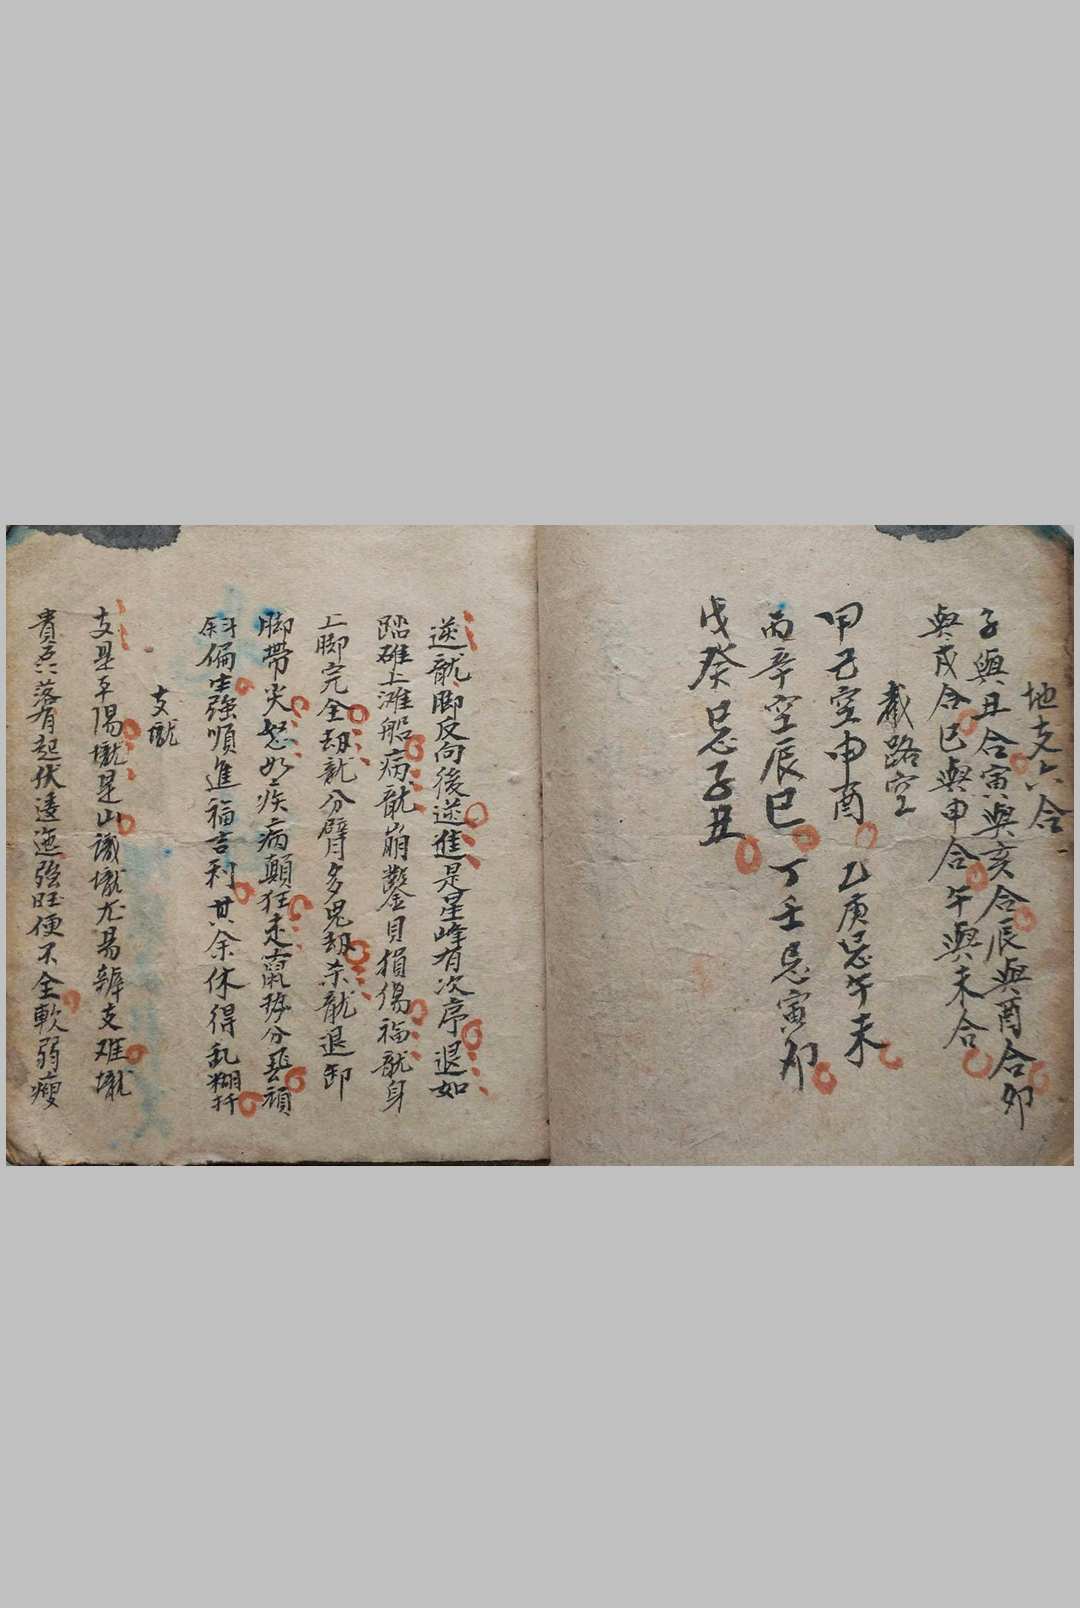 地支六合
子與丑合寅與亥合辰與酉合卯
與戌合巳與申合午與未合
截路空
甲己空申酉 乙庚忌午未
丙辛空辰巳 丁壬忌寅卯
戊癸忌子丑
逆龍脚反向後逆進是星峰有次序退如
踏碓上滩船病龍崩鑿貝損傷福龍身
上脚完全劫龍分臂多鬼劫杀龍退卸
脚帶尖怒如疾病顛狂走竄势分飛
斜偏生強順進福吉利其余休得乱糊扦
支壠
支是平陽壠是山識壠尤易辨支难壠
貴落有起伏逶迤強旺便不全軟弱瘦